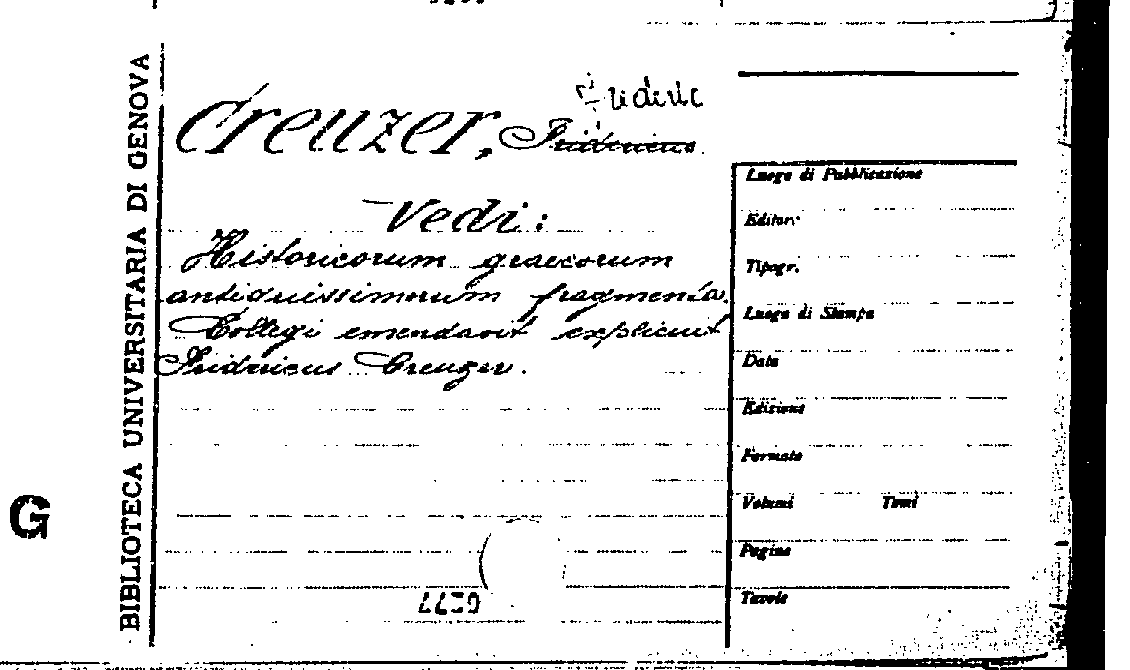 BIBLIOTECA UNIVERSITARIA DI GENOVA
Frideric
Creuzer, Fridericus
Vedi:
Historicorum graecorum
antiquissimorum fragmenta.
Collegi emendavit explicuit
Fridericus Creuzer.
Luogo di Pubblicazione
Editore
Tipogr.
Luogo di Stampa
Data
Edizione
Formato
Volumi Tomi
Pagine
Tavole
G